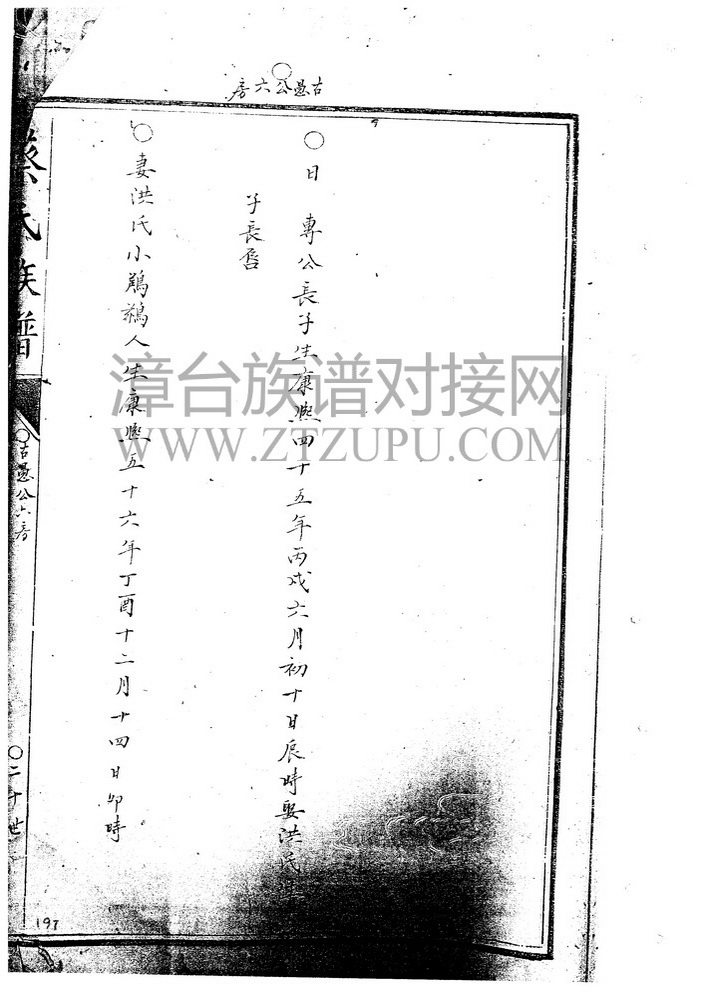 古愚公六房
〇日 專公長子生康熙四十五年丙戌六月初十日辰時娶洪氏
子長
〇妻洪氏小鵝人生康熙五十六年丁酉十二月十四日卯時
蔡氏族譜
〇古愚公六房
〇二十世
197
漳台族谱对接网
WWW.ZTZUPU.COM